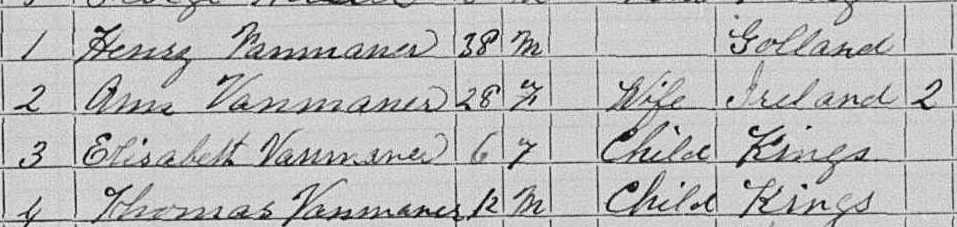 1 Henry Vanmaner 38 M Golland
2 Ann Vanmaner 28 F Wife Ireland 2
3 Elisabeth Vanmaner 6 F Child Kings
4 Thomas Vanmaner 12 M Child Kings